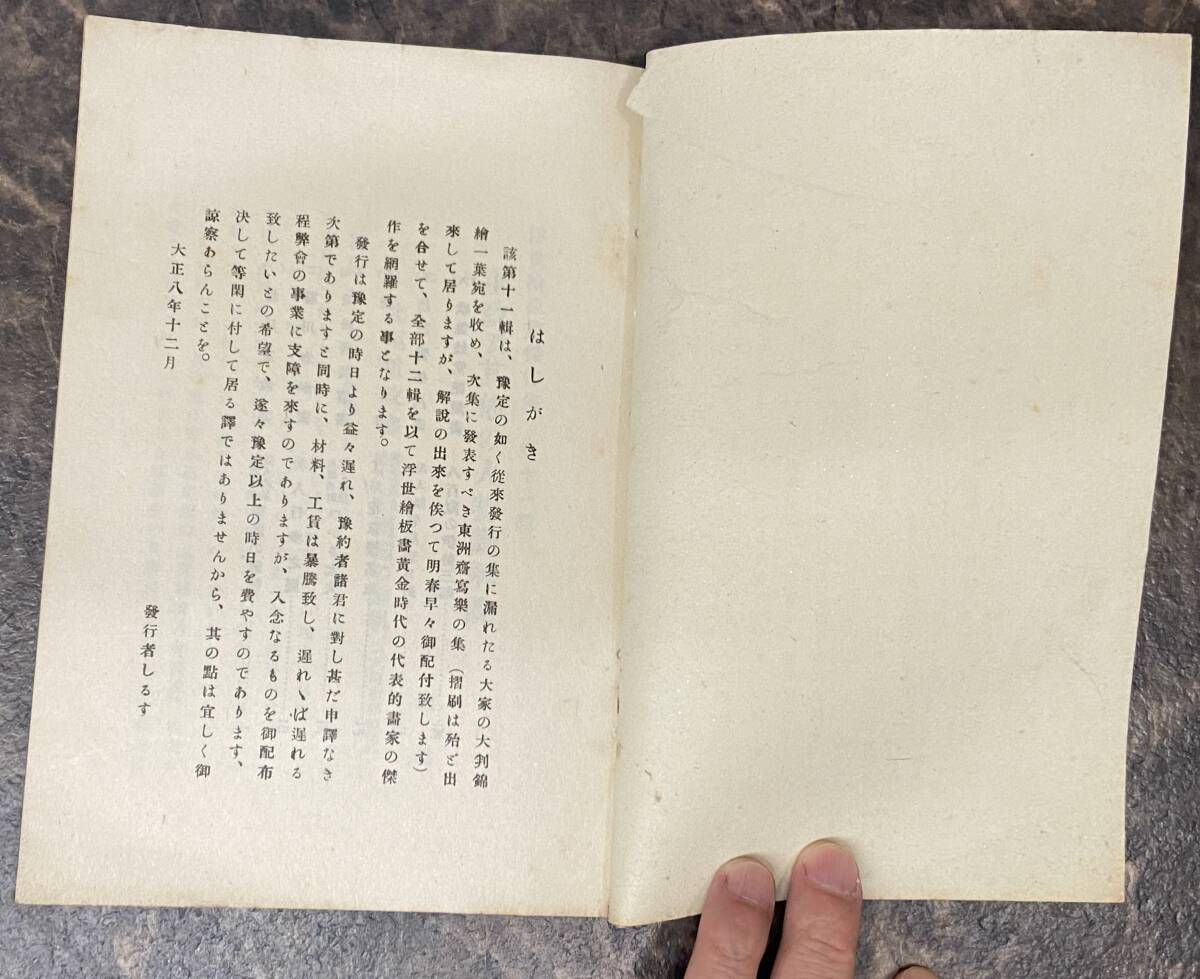 はしがき
該第十一輯は、豫定の如く從來發行の集に漏れたる大家の大判錦
繪一葉宛を收め、次集に發表すべき東洲齋寫樂の集（摺刷は殆ど出
來して居りますが、解說の出來を俟つて明春早々御配付致します）
を合せて、全部十二輯を以て浮世繪板畵黃金時代の代表的畵家の傑
作を網羅する事となります。
發行は豫定の時日より益々遲れ、豫約者諸君に對し甚だ申譯なき
次第でありますと同時に、材料、工賃は暴騰致し、遲れゝば遲れる
程弊會の事業に支障を來すのでありますが、入念なるものを御配布
致したいとの希望で、遂々豫定以上の時日を費やすのであります、
決して等閑に付して居る譯ではありませんから、其の點は宜しく御
諒察あらんことを。
大正八年十二月
發行者しるす